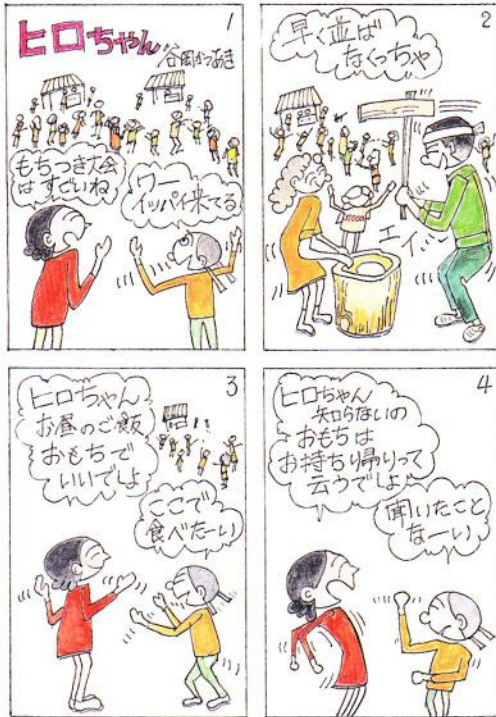 1
ヒロちゃん
谷岡かつあき
もちつき大会
はすごいね
ワー
イッパイ来てる
2
早く並ば
なくっちゃ
エイッ
3
ヒロちゃん
お昼のご飯
おもちで
いいでしょ
ここで
食べたーい
4
ヒロちゃん
知らないの
おもちは
お持ちり帰りって
云うでしょ
聞いたこと
なーい